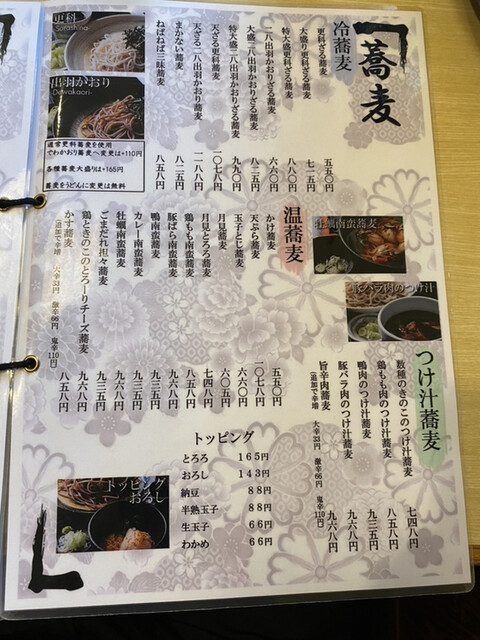 「蕎麦」
冷蕎麦
更科ざる蕎麦 五五〇円
大盛り更科ざる蕎麦 七一五円
特大盛更科ざる蕎麦 八八〇円
二八出羽かおりざる蕎麦 六六〇円
大盛二八出羽かおりざる蕎麦 八二五円
特大盛二八出羽かおりざる蕎麦 九九〇円
天ざる更科蕎麦 一〇七八円
天ざる二八出羽かおり蕎麦 一一八八円
まかない蕎麦 八二五円
ねばねば三昧蕎麦 八五八円
更科
Sarashina
出羽かおり
-Dewakaori-
通常更科蕎麦を使用
でわかおり蕎麦へ変更は+110円
各種蕎麦大盛りは+165円
蕎麦をうどんに変更は無料
温蕎麦
かけ蕎麦 五五〇円
天ぷら蕎麦 一〇七八円
玉子とじ蕎麦 六六〇円
月見蕎麦 六〇五円
月見とろろ蕎麦 七四八円
鶏もも南蛮蕎麦 八五八円
豚ばら南蛮蕎麦 九六八円
鴨南蛮蕎麦 九三五円
カレー南蛮蕎麦 九三五円
牡蠣南蛮蕎麦 九六八円
ごまだれ担々蕎麦 九三五円
鶏ときのこのとろーりチーズ蕎麦 九六八円
かす蕎麦 八五八円
(追加で辛増 大辛33円 激辛66円 鬼辛110円)
牡蠣南蛮蕎麦
豚バラ肉のつけ汁
つけ汁蕎麦
数種のきのこのつけ汁蕎麦 七四八円
鶏もも肉のつけ汁蕎麦 八五八円
鴨肉のつけ汁蕎麦 九三五円
豚バラ肉のつけ汁蕎麦 九六八円
旨辛肉蕎麦 九六八円
(追加で辛増 大辛33円 激辛66円 鬼辛110円)
トッピング
とろろ 165円
おろし 143円
納豆 88円
半熟玉子 88円
生玉子 66円
わかめ 66円
トッピング
おろし